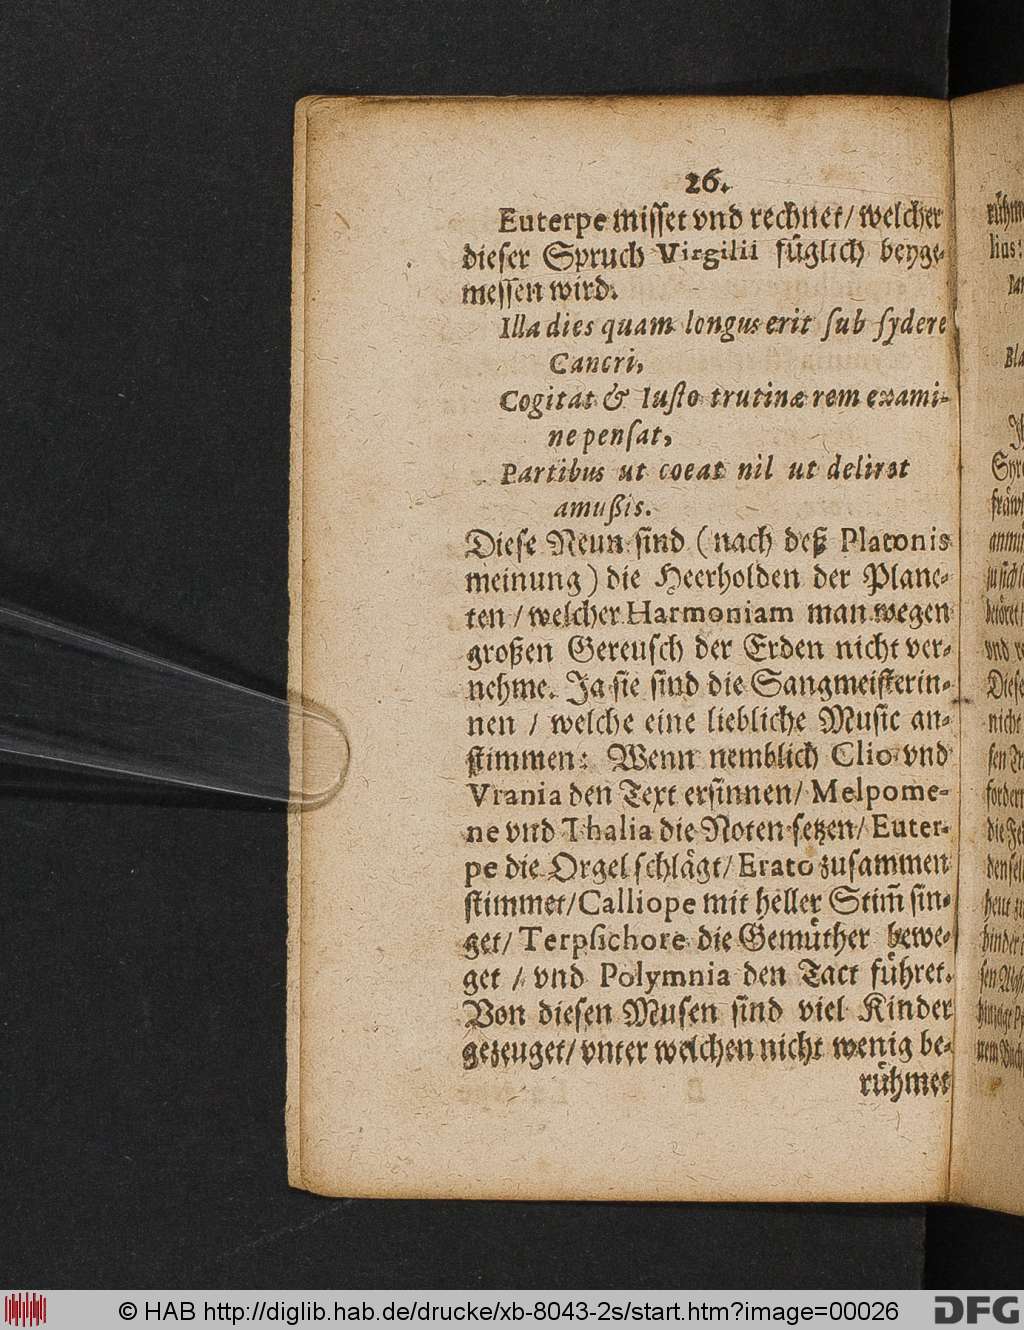 26.
Euterpe misset vnd rechnet/ welcher
dieser Spruch Virgilii füglich beyge-
messen wird.
Illa dies quam longus erit sub sydere
Cancri,
Cogitat & Iusto trutinæ rem exami-
ne pensat,
Partibus ut coeat nil ut delirat
amußis.
Diese Neun sind (nach deß Platonis
meinung) die Heerholden der Plane-
ten / welcher Harmoniam man wegen
großen Gereusch der Erden nicht ver-
nehme. Ja sie sind die Sangmeisterin-
nen / welche eine liebliche Music an-
stimmen: Wenn nemblich Clio vnd
Vrania den Text ersinnen/ Melpome-
ne vnd Thalia die Noten setzen/ Euter-
pe die Orgel schlägt/ Erato zusammen
stimmet/ Calliope mit heller Stim̃ sin-
get/ Terpsichore die Gemüther bewe-
get / vnd Polymnia den Tact führet.
Von diesen Musen sind viel Kinder
gezeuget/ vnter welchen nicht wenig be-
rühmet
© HAB http://diglib.hab.de/drucke/xb-8043-2s/start.htm?image=00026
DFG